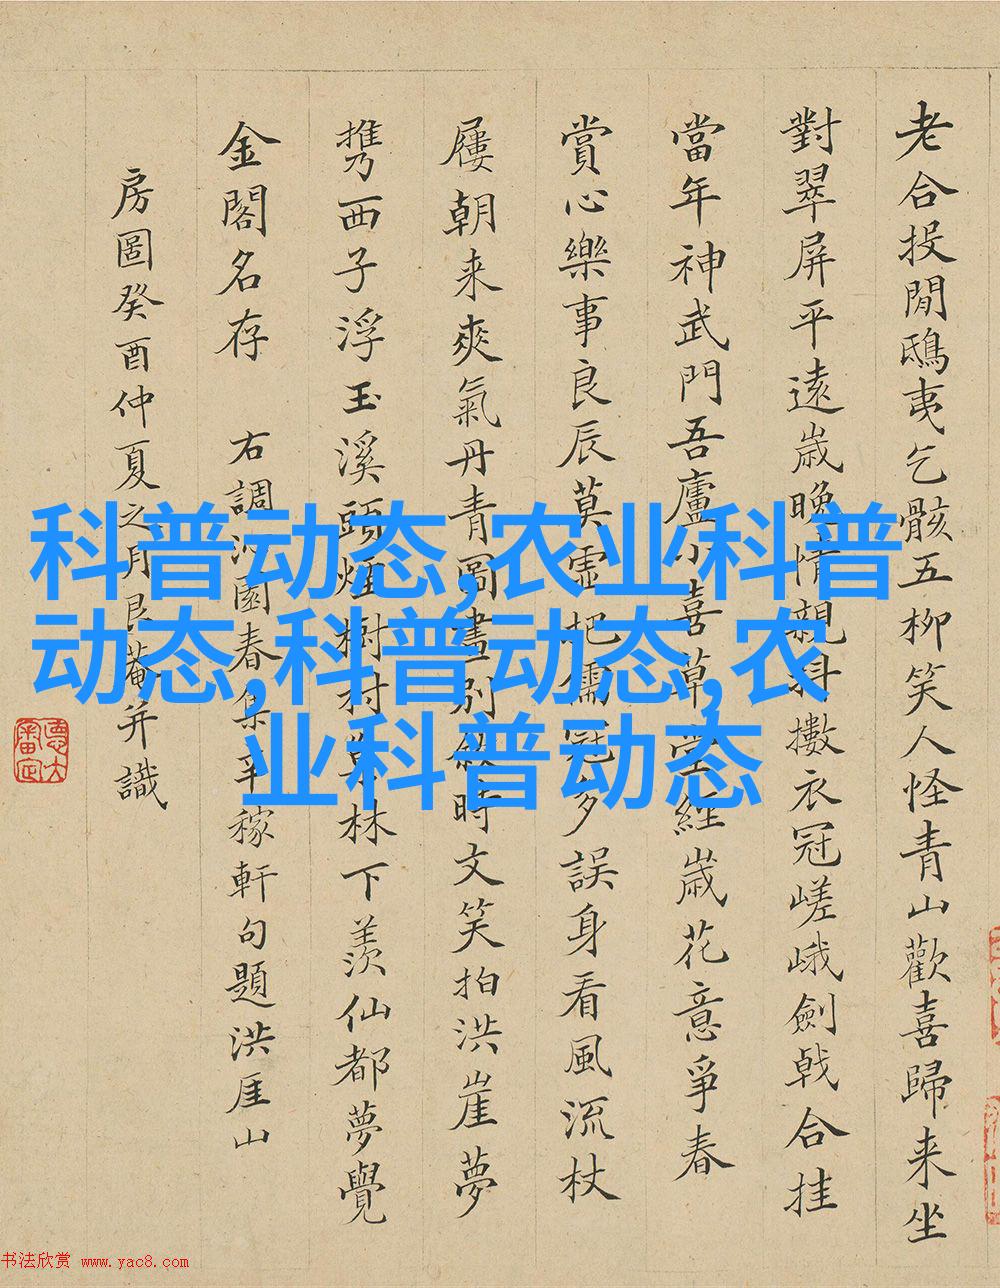 老合投閒鴟夷乞骸五柳笑人怪青山歡喜歸来坐
對翠屏平遠歲晚情親抖擻衣冠嵯峨劍戟合挂
當年神武門吾廬小喜草堂經歲花意爭春
賞心樂事良辰莫虛把儒冠多誤身看風流杖
屨朝来爽氣丹青圖畫別時文笑拍洪崖夢
携西子浮玉溪頭煙樹村林下羨仙都夢覺
金閣名存 右調沁園春集辛稼軒句題洪厓山
房圖癸酉仲夏之月艮菴并識
科普动态,农业科普
动态,科普动态,农
业科普动态
书法欣赏 www.yac8.com